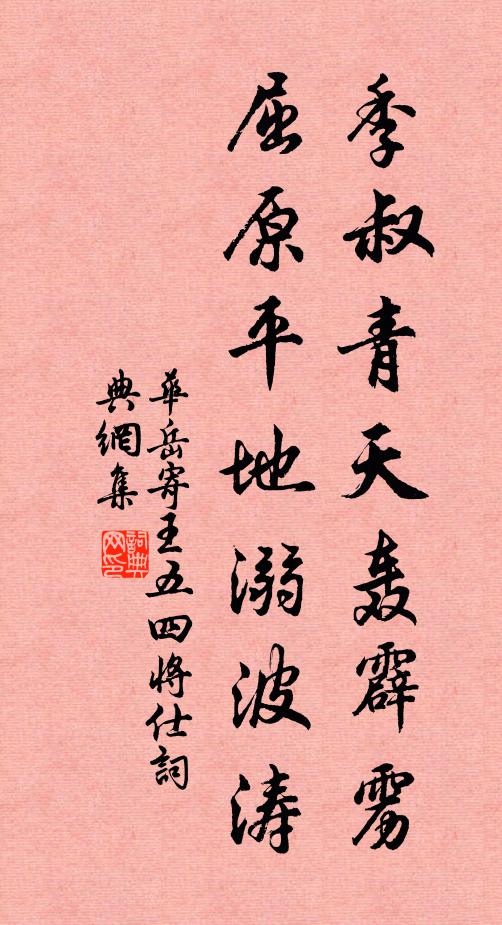 季叔青天轰霹雳
屈原平地溺波涛
華岳寄王五四将仕詞
典網集
詞典
网印